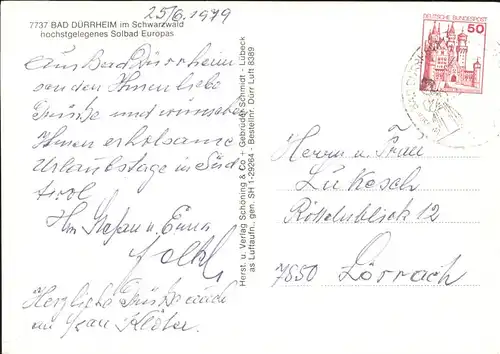 25/6.1979
7737 BAD DÜRRHEIM im Schwarzwald
höchstgelegenes Solbad Europas
Aus Bad Dürrheim
senden Ihnen liebe
Grüße und wünschen
Ihnen erholsame
Urlaubstage in Süd
tirol
Ihr Stefan u. Erna
Herzliche Grüße auch
an Frau Klöter.
Herst. u. Verlag Schöning & Co + Gebrüder Schmidt - Lübeck
as Luftaufn., gen. SH 1-29264 - Bestellnr. Dürr Luft 8389
DEUTSCHE BUNDESPOST
50
Herrn u. Frau
Lukesch
12
7850 Lörrach